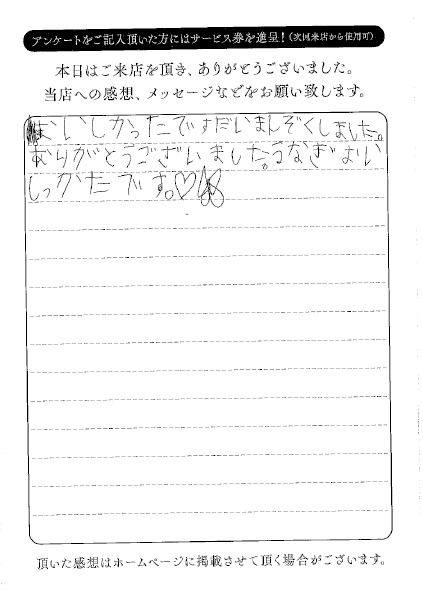 アンケートをご記入頂いた方にはサービス券を進呈！（次回来店から使用可）
本日はご来店を頂き、ありがとうございました。
当店への感想、メッセージなどをお願い致します。
おいしかったですだいまんぞくしました。
ありがとうございました。うなぎおい
しっかたです。♡
頂いた感想はホームページに掲載させて頂く場合がございます。